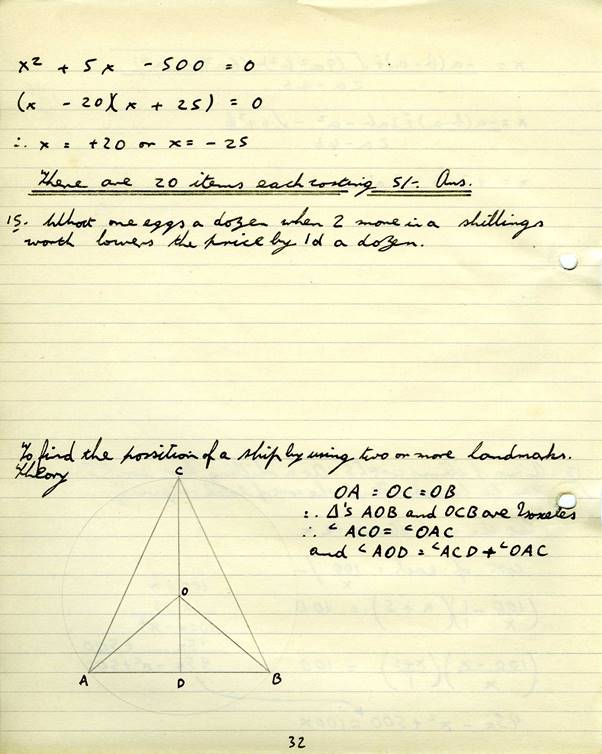 x² + 5x - 500 = 0
(x - 20)(x + 25) = 0
∴ x = +20 or x = - 25
There are 20 items each costing 5/-. Ans.
15. What are eggs a dozen when 2 more in a shillings
worth lowers the price by 1d a dozen.
To find the possition of a ship by using two or more landmarks.
Theory
C
OA = OC = OB
∴ Δ's AOB and OCB are
∴ ∠ACO = ∠OAC
and ∠AOD = ∠ACD + ∠OAC
O
A
D
B
32